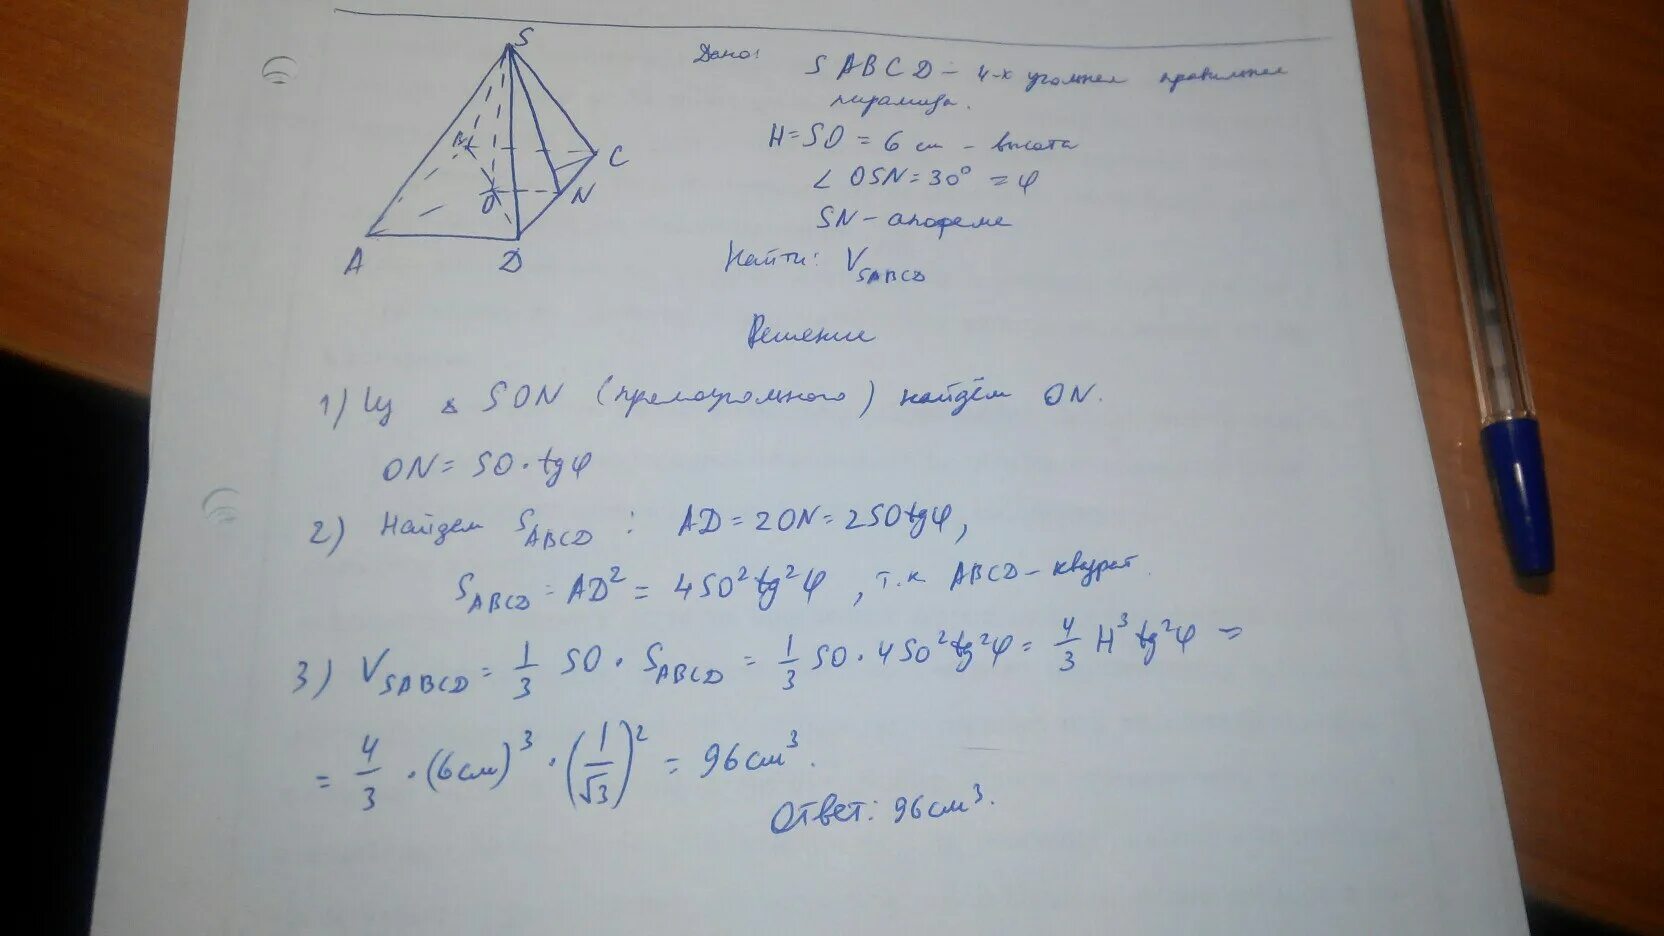 S
B
C
O
N
A
D
Дано: SABCD – 4-х угольная правильная
пирамида.
H = SO = 6 см – высота
∠ OSN = 30° = φ
SN – апофема
Найти: V_SABCD
Решение
1) Из Δ SON (прямоугольного) найдём ON.
ON = SO · tgφ
2) Найдем S_ABCD : AD = 2ON = 2SOtgφ,
S_ABCD = AD² = 4SO²tg²φ , т.к ABCD – квадрат.
3) V_SABCD = 1/3 SO · S_ABCD = 1/3 SO · 4SO²tg²φ = 4/3 H³tg²φ =
= 4/3 · (6см)³ · (1/√3)² = 96см³.
Ответ: 96см³.